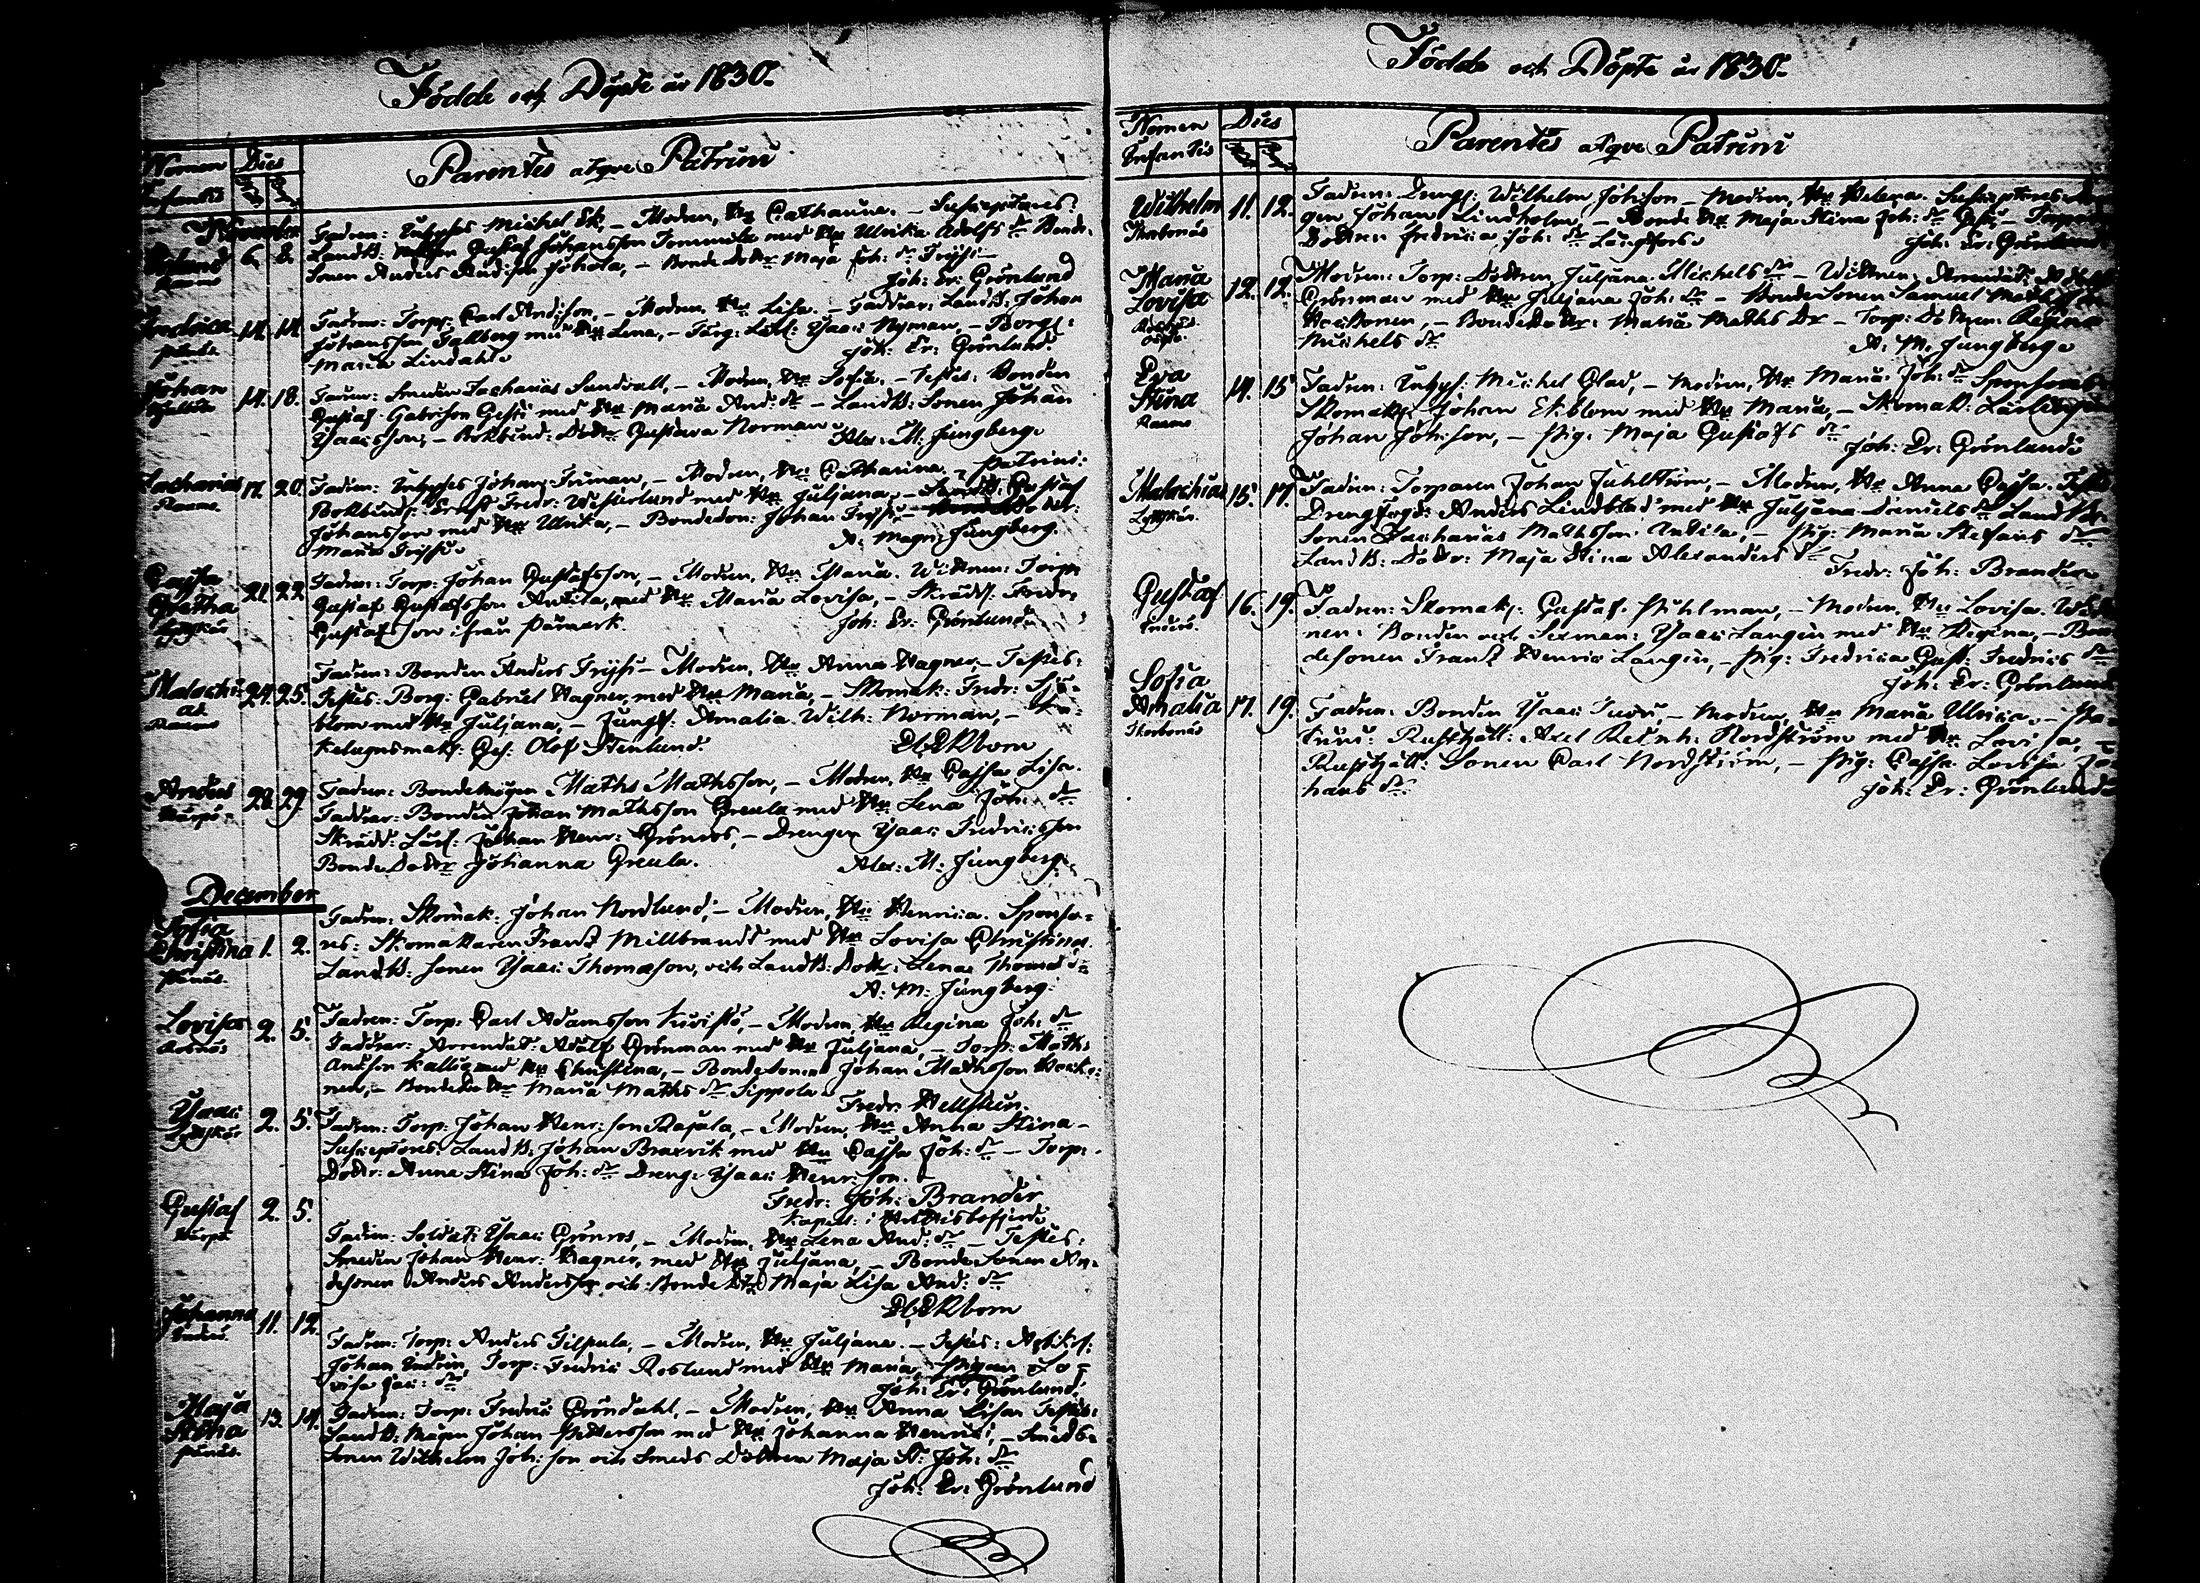 Födde och Döpte år 1830.
Nomen Dies
Infantis
Parentes atqve Patrini
November
6. 8. Fadren: Inhyses Michel Ek, – Modren, Hu Catharina. – Susceptores:
Landtb: Gustaf Johansson Tommila med Hu Ulrika Adolfs dr Bonde-
Sonen Anders And:son Johola, – Bonde Dottr Maja Joh: dr Fryssi –
Joh: Er: Grönlund
Fredrica 14. 14. Fadren: Torp: Carl And:son, – Modren Hu Lisa. – Faddrar: Landtb: Johan
Johansson Tallberg med Hu Lena, – Färg: Lärl: Isaac Nyman, – Borg:
Maria Lindahl.
Joh: Er: Grönlund.
Johan 14. 18. Fadren: Smeden Zacharias Sundvall, – Modren, Hu Sofia. – Testes: Bonden
Gustaf Gabr:son Gesti med Hu Maria And: dr – Landtb: Sonen Johan
Isaacsson, – Bokbind: Dottr Gustava Norman.
Alex: M: Jungberg.
Zacharias 17. 20. Fadren: Inhyses Johan Friman, – Modren, Hu Catharina. – Patrini:
Raumo
Bokbind: Ernst Fredr: Westerlund med Hu Juljana, – Landtb: Gustaf
Johansson med Hu Ulrika, – Bondeson: Johan Fryssi, – Dottr:
Maria Fryssi.
A. Magn: Jungberg.
Cajsa 21. 22. Fadren: Torp: Johan Gustafsson, – Modren, Hu Maria. Wittnen: Torp:
Gretha Gustaf Gustafsson Anttila, med Hu Maria Lovisa, – Skrädd: Fredr:
Gustafsson ifrån Påmark.
Joh: Er: Grönlund.
Malachi- 24. 25. Fadren: Bonden Anders Fryssi – Modren, Hu Anna Wagner – Testes:
as
Raumo
Testes: Borg: Gabriel Wagner med Hu Maria, – Skomak: Fredr: Sjö-
blom med Hu Juljana, – Jungf: Amalia Wilh: Norman, – Ka-
kelugnsmak: Ges: Olof Stenlund.
Ekbom
Anders 28. 29. Fadren: Bondemågen Maths Mathsson, – Modren, Hu Cajsa Lisa.
Faddrar: Bonden Johan Mathsson Greula med Hu Lena Joh: dr
Skrädd: Lärl: Johan Henr: Grönros, – Drengen Isaac Fredricsson
Bonde Dottr Johanna Greula.
Alex: M: Jungberg.
December
Sofia
Christina 1. 2. Fadren: Skomak: Johan Nordlund, – Modren, Hu Henrica. Sponso-
res: Skomakaren Frantz Millbrandt med Hu Lovisa Christina.
Landtb: Sonen Isaac Thomasson, och Landtb: Dottr: Lena Thomas dr
A: M: Jungberg.
Lovisa 2. 5. Fadren: Torp: Carl Adamsson Kivistö, – Modren, Hu Regina Joh: dr
Faddrar: Arrendat: Adolf Grönman med Hu Juljana, – Torp: Maths
And:son Kallio med Hu Christina, – Bondesonen Johan Mathsson Heiko-
nen, – Bonde Dottr Maria Maths dr Sippola
Fredr: Hellsten.
Isaac 2. 5. Fadren: Torp: Johan Henr:son Rajala, – Modren, Hu Anna Stina –
Susceptores: Landtb: Johan Braxvik med Hu Cajsa Joh: dr – Torp:
Dottr: Anna Stina Joh: dr Dreng: Isaac Henr:son.
Fredr: Joh: Brander
Kapell: i Hvittisbofjerd.
Gustaf 2. 5. Fadren: Soldat: Isaac Grönros, – Modren, Hu Lena And: dr – Testes:
Smeden Johan Henr: Wagner, med Hu Juljana, – Bonde Sonen An-
desonen Anders Andersson och Bonde Dtr Maja Lisa And: dr
Ekbom
Johanna 11. 12. Fadren: Torp: Anders Filpula, – Modren, Hu Juljana. – Testes:
Johan Torp: Fredric Roslund med Hu Maria, Pigan Lo-
visa Jac: dr
Joh: Er: Grönlund.
Maja 13. 14. Fadren: Torp: Fredric Gröndahl, – Modren, Hu Anna Lisa. Testes:
Stina Landtb: Mågen Johan Pettersson med Hu Johanna Henric:, – Smeds-
Sonen Wilhelm Joh:son och Smeds Dottren Maja St: Joh: dr
Joh: Er: Grönlund
Födde och Döpte år 1830.
Nomen Dies
Infantis
Parentes atqve Patrini
Wilhelm 11. 12. Fadren: Dreng: Wilhelm Joh:son – Modren, Hu Helena. Susceptores:
Thorbonäs
gen Johan Lindholm, – Bonde Hu Maja Stina Joh: dr – Torpare
Dottren Fredrica Joh: dr Långfors.
Joh: Er: Grönlund
Maria 12. 12. Modren: Torp: Dottren Juljana Michels dr – Wittnen: Arrendat:
Lovisa Grönman med Hu Juljana Joh: dr – Bonde Sonen Samuel
Heikonen, – Bonde Dottr: Maria Maths Dr – Torp: Dottren Regina
Michels dr
A. M. Jungberg.
Eva 14. 15 Fadren: Inhys: Michel Glad, – Modren, Hu Maria Joh: dr Sponsores
Stina Skomak: Johan Ekblom med Hu Maria, – Skomak: Lärling
Raumo
Johan Joh:son, – Pig: Maja Gustafs dr
Joh: Er: Grönlund
Malachias 15. 17. Fadren: Torparen Johan Juhlström, – Modren, Hu Anna Cajsa.
Drengfogd: Anders Lindblad med Hu Juljana Daniels dr Landtb:
Sonen Zacharias Mathsson Anttila, – Pig: Maria Stefans dr
Landtb: Dottr: Maja Stina Alexanders dr
Fredr: Joh: Brander
Gustaf 16. 19. Fadren: Skomak: Gustaf Stuhlman, – Modren, Hu Lovisa. Witt-
nen: Bonden och Sexman: Isaac Langin med Hu Regina, – Bon-
desonen Frantz Henric Langin, – Pig: Fredrica Gust: Fredrics dr
Joh: Er: Grönlund
Sofia
Amalia 17. 19. Fadren: Bonden Isaac – Modren, Hu Maria Ulrica. – Pa-
Thorbonäs
trini: Rusthåll: Axel Reinh: Nordström med Hu Lovisa, –
Rusthåll: Sonen Carl Nordström, – Pig: Cajsa Lovisa Jo-
hans dr
Joh: Er: Grönlund